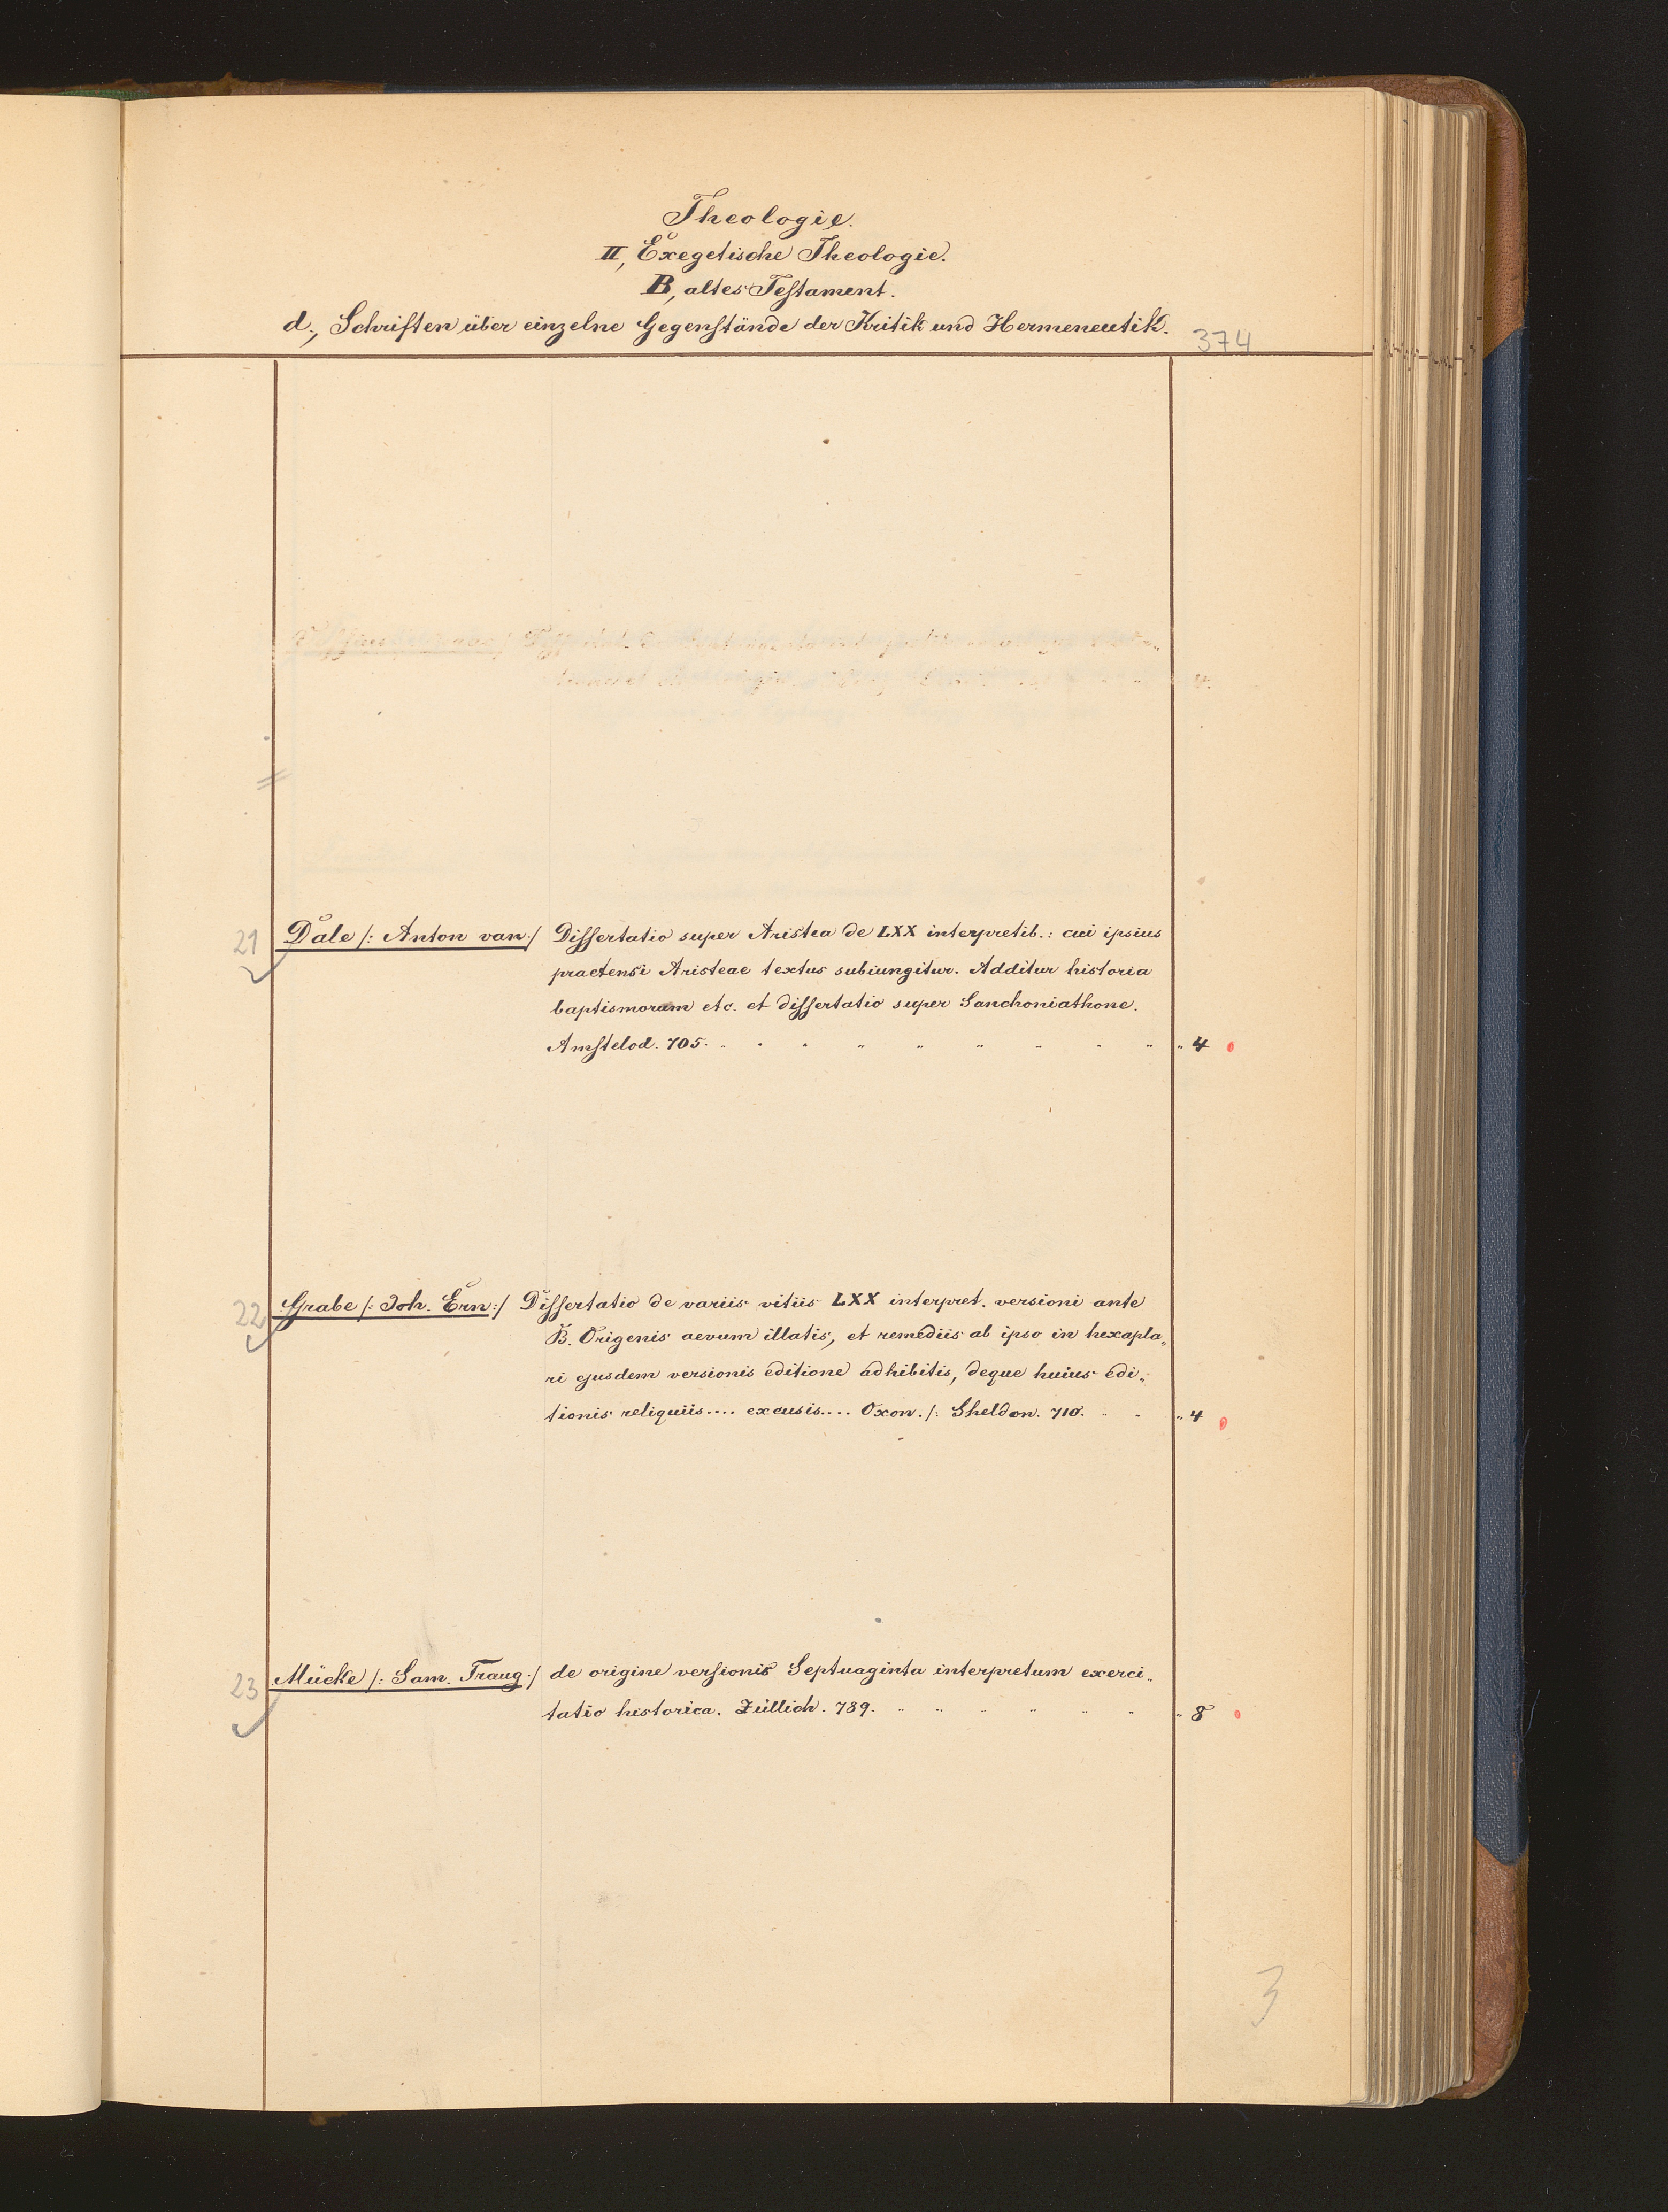 Theologie.
II, Exegetische Theologie.
B, altes Testament.
d., Schriften über einzelne Gegenstände der Kritik und Hermeneutik.
374
4.
21 Dale /: Anton van :/ Dissertatio super Aristea de LXX interpretib.: cui ipsius
praetensi Aristeae textus subiungitur. Additur historia
baptismorum etc. et dissertatio super Sanchoniathone.
Amstelod. 705. 4
22 Grabe /: Joh. Ern :/ Dissertatio de variis vitiis LXX interpret. versioni ante
B. Origenis aevum illatis, et remediis ab ipso in hexapla„
ri ejusdem versionis editione adhibitis, deque huius edi„
tionis reliquiis.... excusis.... Oxon. /: Sheldon. 710. 4
23 Mücke /: Sam. Traug :/ de origine versionis Septuaginta interpretum exerci„
tatio historica. Züllich. 789. 8
3